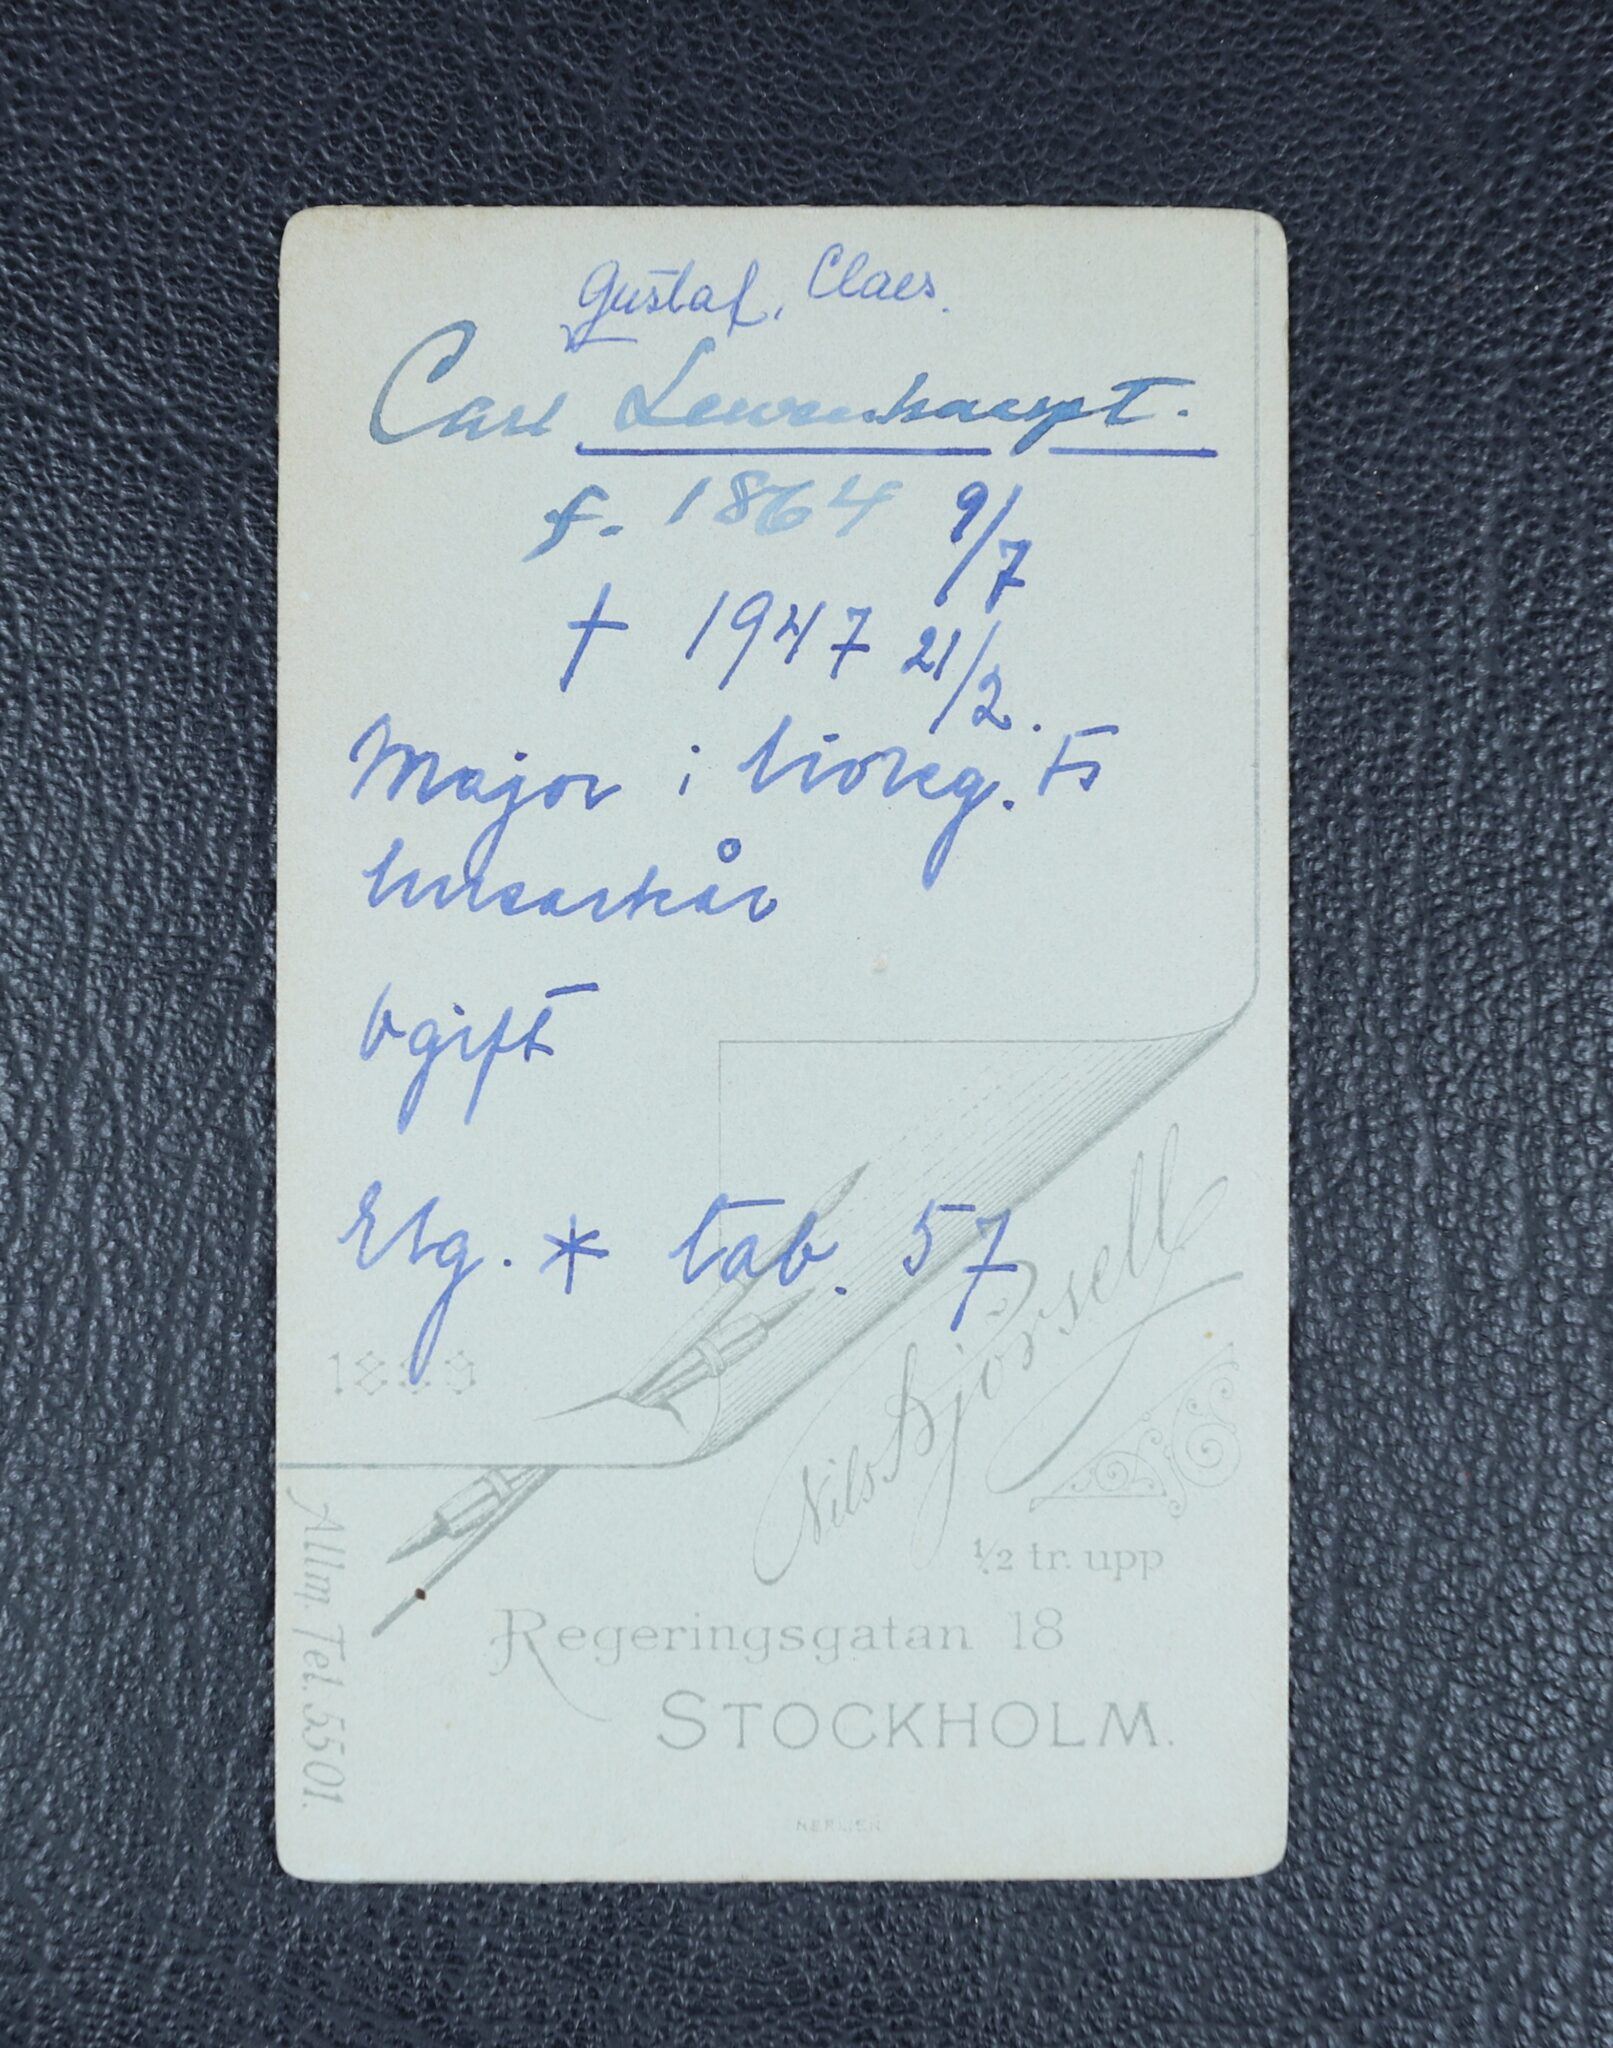 Gustaf, Claes.
Carl Lewenhaupt.
f. 1864 9/7
† 1947 21/2.
Major i livreg. ts
husarkår
ogift
Elg. * tab. 57
1889
Nils Björsell
1/2 tr. upp
Regeringsgatan 18
STOCKHOLM.
Allm. Tel. 5501.